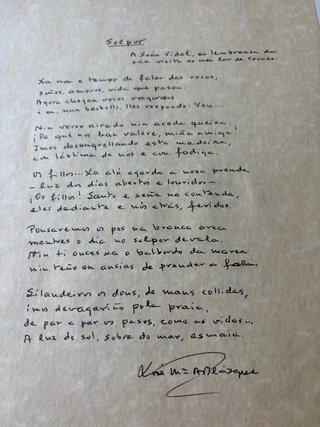 Solpor
A Xoán Vidal, en lembranza da
súa visita ao meu lar de Coruxo.
Xa non é tempo de falar das rosas,
soños, amores, vida que pasou.
Agora chegan voces vagarosas
e eu, nun bosbollo, lles respondo: Vou...
Nin verso airado nin aceda queixa.
¡De qué nos han valere, miña amiga!
Imos desengrellando esta madeixa,
con lástima de nós e con fadiga.
Os fillos... Xa alá agarda a nosa prenda
– luz dos días abertos e louridos –.
¡Os fillos! Santo e seña na contenda,
eles dediante e nós atrás, feridos.
Pousaremos os pés na branca area
mentres o día no solpor devala.
Nin ti ouces xa o balbordo da marea
nin teño eu ansias de prender a fala.
Silandeiros os dous, de mans collidas,
imos devagariño pola praia,
de par a par os pasos, como as vidas...
A luz do sol, sobre do mar, esmaia.
Xosé Mª A. Blázquez